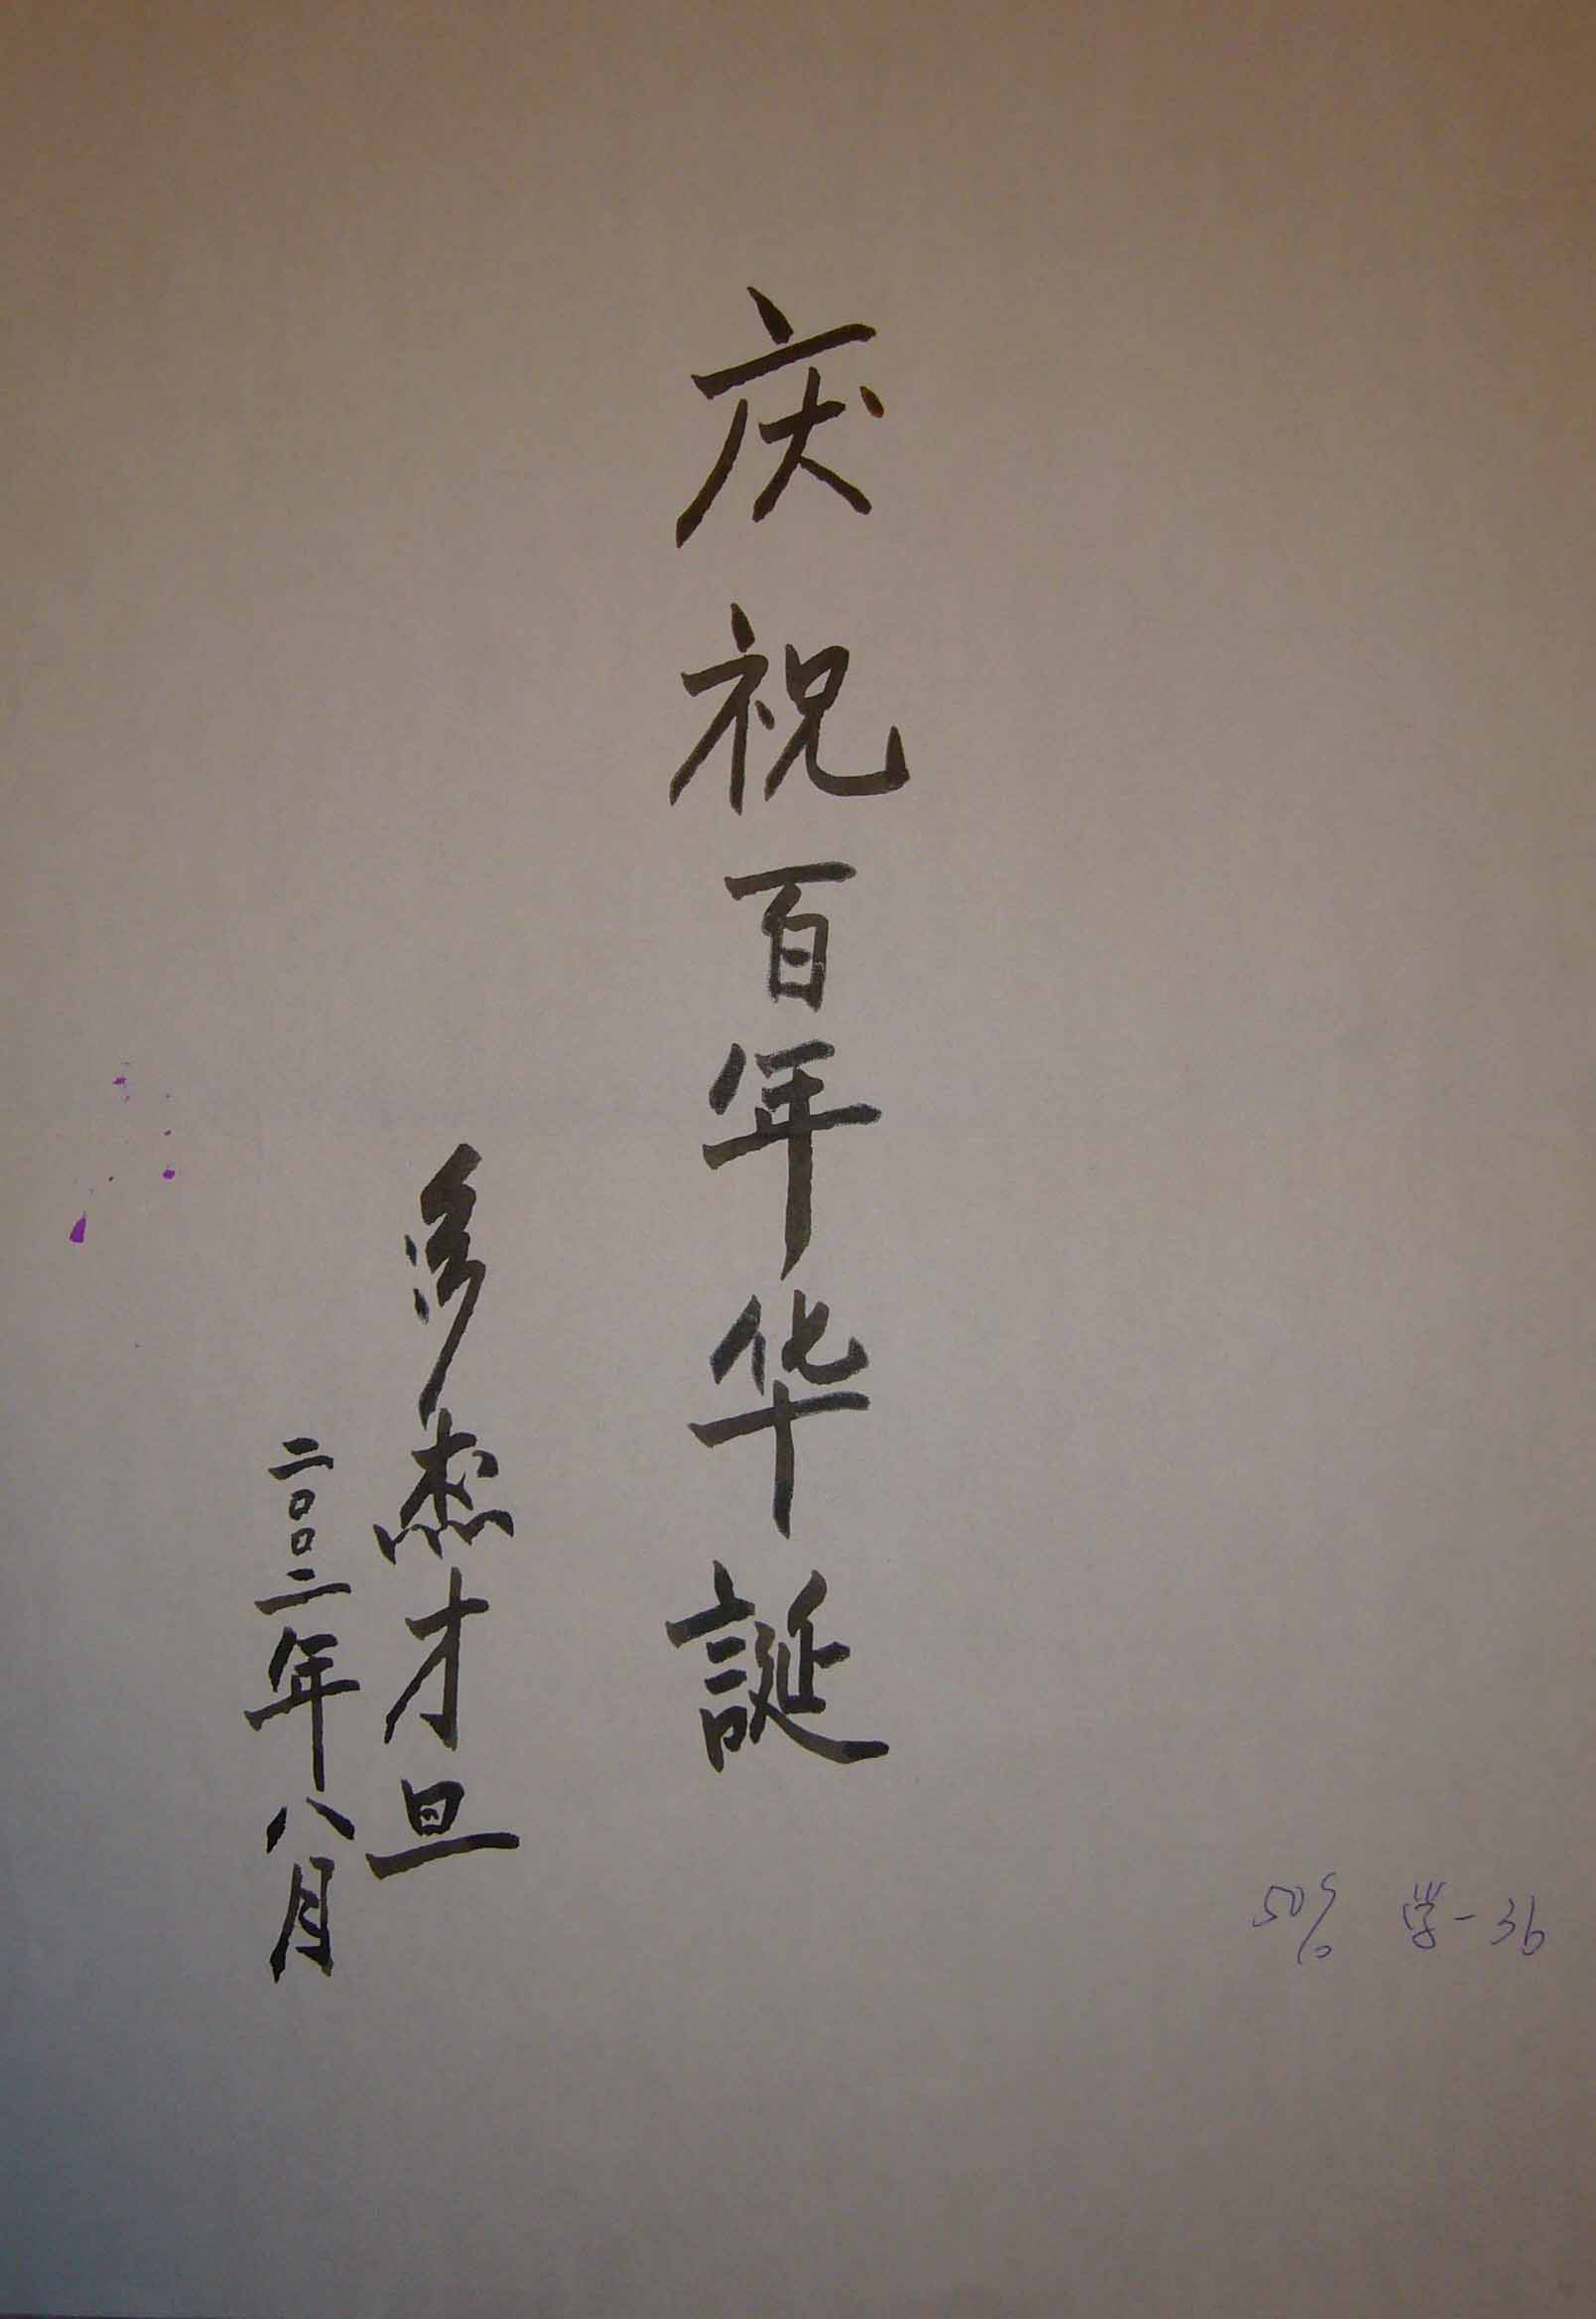 庆祝百年华誕
多杰才旦
二〇〇二年八月
50% 学-36